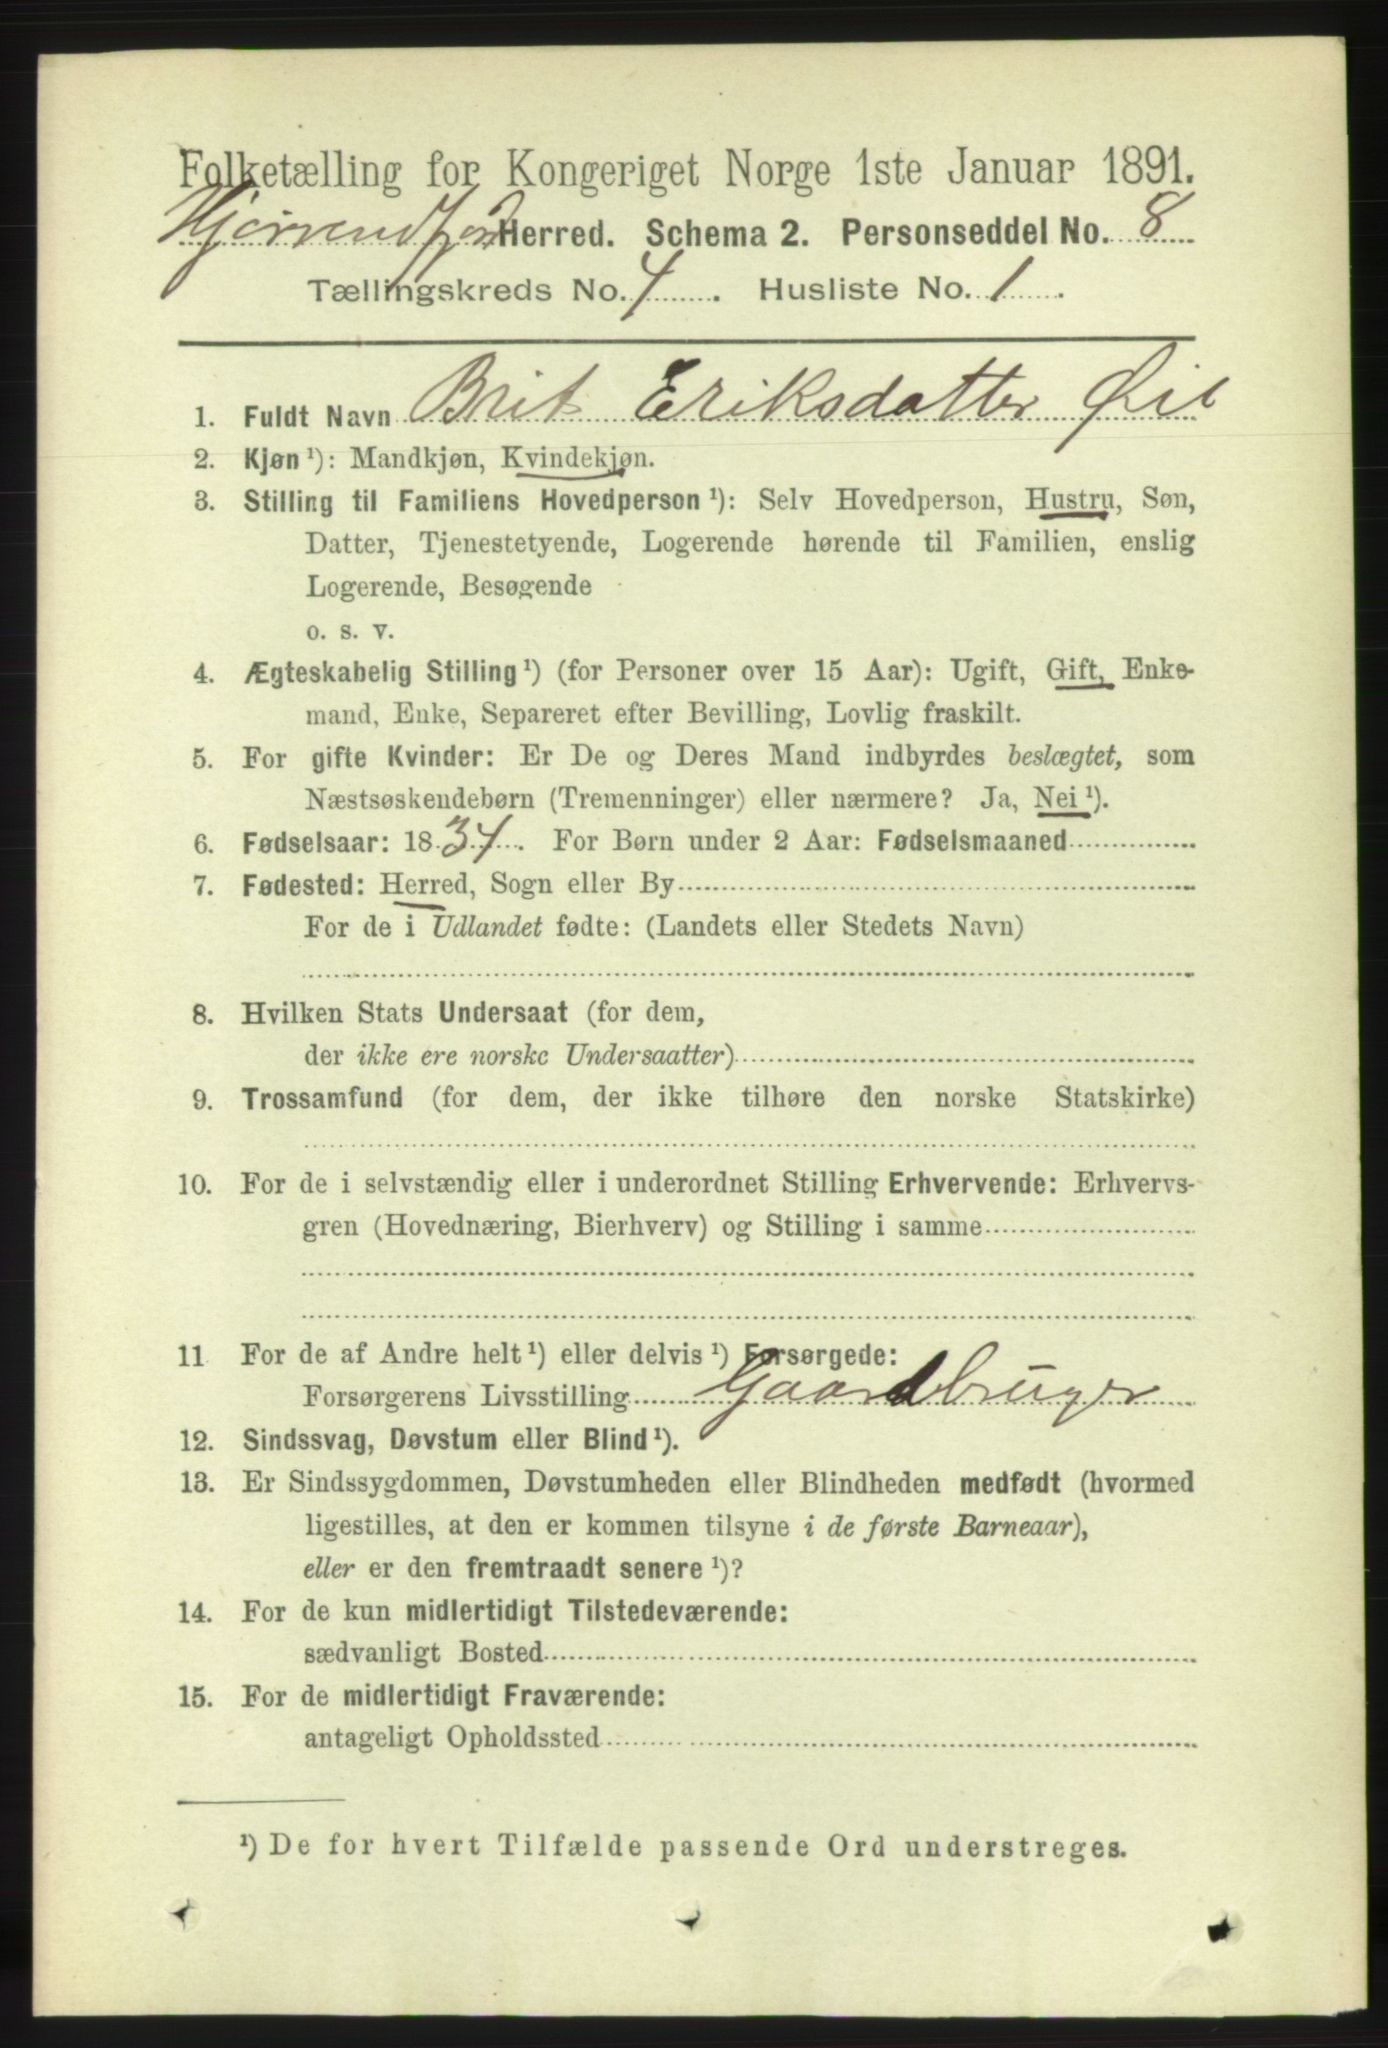 Folketælling for Kongeriget Norge 1ste Januar 1891.
Hjørrendfjord Herred. Schema 2. Personseddel No. 8
Tællingskreds No. 4. Husliste No. 1.
1. Fuldt Navn Brit Eriksdatter
2. Kjøn ¹): Mandkjøn, Kvindekjøn.
3. Stilling til Familiens Hovedperson ¹): Selv Hovedperson, Hustru, Søn,
Datter, Tjenestetyende, Logerende hørende til Familien, enslig
Logerende, Besøgende
o. s. v.
4. Ægteskabelig Stilling ¹) (for Personer over 15 Aar): Ugift, Gift, Enke-
mand, Enke, Separeret efter Bevilling, Lovlig fraskilt.
5. For gifte Kvinder: Er De og Deres Mand indbyrdes beslægtet, som
Næstsøskendebørn (Tremenninger) eller nærmere? Ja, Nei ¹).
6. Fødselsaar: 1834. For Børn under 2 Aar: Fødselsmaaned
7. Fødested: Herred, Sogn eller By
For de i Udlandet fødte: (Landets eller Stedets Navn)
8. Hvilken Stats Undersaat (for dem,
der ikke ere norske Undersaatter)
9. Trossamfund (for dem, der ikke tilhøre den norske Statskirke)
10. For de i selvstændig eller i underordnet Stilling Erhvervende: Erhvervs-
gren (Hovednæring, Bierhverv) og Stilling i samme
11 For de af Andre helt ¹) eller delvis ¹) Forsørgede:
Forsørgerens Livsstilling Gaardbruger
12. Sindssvag, Døvstum eller Blind ¹).
13. Er Sindssygdommen, Døvstumheden eller Blindheden medfødt (hvormed
ligestilles, at den er kommen tilsyne i de første Barneaar),
eller er den fremtraadt senere ¹)?
14. For de kun midlertidigt Tilstedeværende:
sædvanligt Bosted
15. For de midlertidigt Fraværende:
antageligt Opholdssted
¹) De for hvert Tilfælde passende Ord understreges.